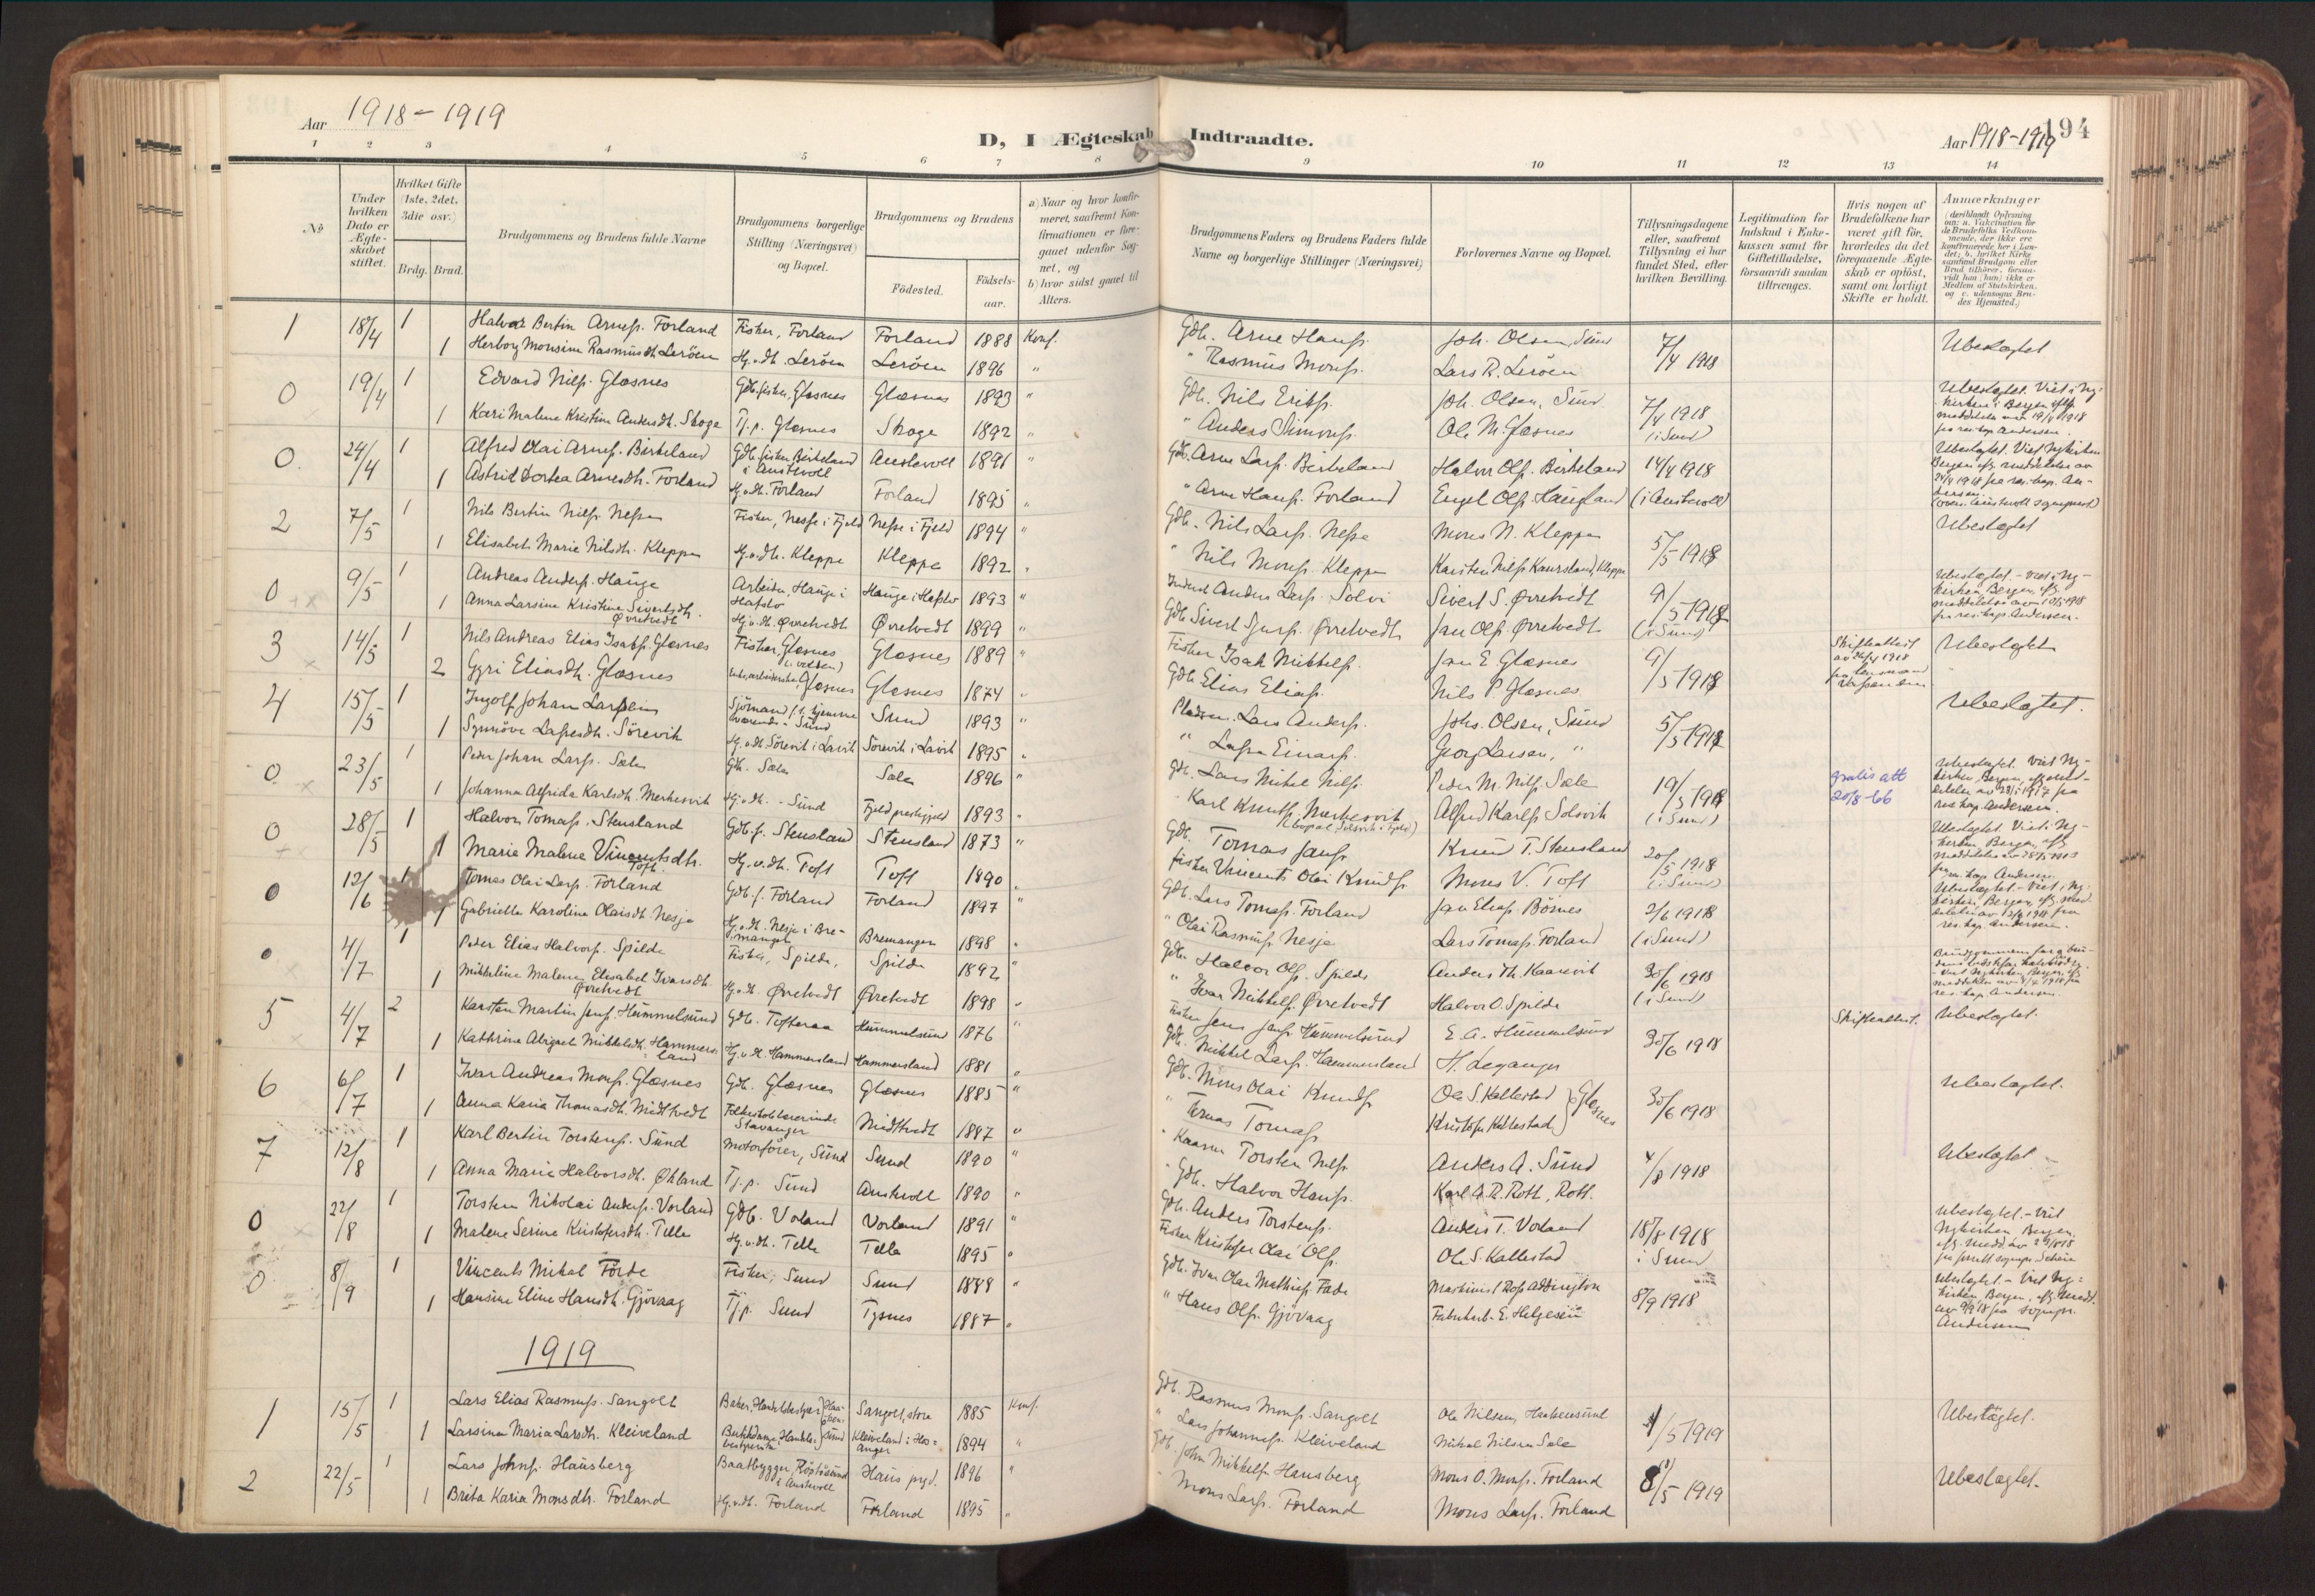 Aar 1918 - 1919
D, I Ægteskab Indtraadte.
Aar 1918-1919
194
1 2 3 4 5 6 7 8 9 10 11 12 13 14
No
Under hvilken Dato er Ægteskabet stiftet.
Hvilket Gifte (1ste, 2det, 3die osv.)
Brdg. Brud.
Brudgommens og Brudens fulde Navne
Brudgommens borgerlige Stilling (Næringsvei) og Bopæl.
Brudgommens og Brudens
Födested.
Födselsaar.
a) Naar og hvor konfirmeret, saafremt Konfirmationen er foregaaet udenfor Sognet, og
b) hvor sidst gaaet til Alters.
Brudgommens Faders og Brudens Faders fulde Navne og borgerlige Stillinger (Næringsvei)
Forlovernes Navne og Bopæl.
Tillysningsdagene eller, saafremt Tillysning ei har fundet Sted, efter hvilken Bevilling.
Legitimation for Indskud i Enkekassen samt for Giftetilladelse, forsaavidt saadan tiltrænges.
Hvis nogen af Brudefolkene har været gift för, hvorledes da det foregaaende Ægteskab er oplöst, samt om lovligt Skifte er holdt.
Anmærkninger
(deriblandt Oplysning om: a. Vakcination for de Brudefolks Vedkommende, der ikke ere konfirmerede her i Landet; b. hvilket Kirkesamfund Brudgom eller Brud tilhörer, forsaavidt han (hun) ikke er Medlem af Statskirken, og c. udensogns Brudes Hjemsted.)
1 18/4 1 Halvor Bertin Arness. Forland Fisker, Forland Forland 1888 Konf. Gdb. Arne Hanss. Joh. Olsen, Sund 7/4 1918 Ubeslægtet
1 Herborg Monsine Rasmusdh. Leröen Hj.v.dh. Leröen Leröen 1896 " " Rasmus Monss. Lars R. Leröen
0 19/4 1 Edvard Nilss. Glæsnes Gdb. fisker, Glæsnes Glæsnes 1893 " Gdb. Nils Erikss. Joh. Olsen, Sund 7/4 1918 Ubeslægtet. Viet i Ny-
kirken i Bergen iflg.
meddelelse av 19/4 1918
fra res. kap. Andersen.
1 Kari Malene Kristine Andersdh. Skoge Tj.p. Glæsnes Skoge 1892 " " Anders Simonss. Ole M. Glæsnes (i Sund)
0. 24/4 1 Alfred Olai Arness. Birkeland Gdb. fisker Birkeland i Austevoll Austevoll 1891 " Gdb. Arne Larss. Birkeland Halvor Olss. Birkeland 14/4 1918 Ubeslægtet. Viet Nykirken
Bergen iflg. meddelelse av
24/4 1918 fra res. kap. Andersen.
1 Astrid Dortea Arnesdh. Forland Hj.v.dh. Forland Forland 1895 " " Arne Hanss. Forland Engel Olss. Haugland (i Austevoll)
2 7/5 1 Nils Bertin Nilss. Nesse Fisker, Nesse i Fjeld Nesse i Fjeld 1894 " Gdb. Nils Larss. Nesse Mons N. Kleppe 5/5 1918 Ubeslægtet
1 Elisabeth Marie Nilsdh. Kleppe Hj.v.dh. Kleppe Kleppe 1892 " " Nils Monss. Kleppe Karsten Nilss. Kausland, Kleppe
0 9/5 1 Andreas Anderss. Hauge Arbeider, Hauge i Hafslo Hauge i Hafslo 1893 " Anders Larss. Solvi Sivert S. Øvretvedt 9/5 1918 Ubeslægtet. - viet i Ny-
kirken, Bergen, iflg.
fra res. kap. Andersen.
1 Anna Larsine Kristine Sivertsdh. Øvretvedt Hj.v.dh. Øvretvedt Øvretvedt 1899 " Gdb. Sivert Sjurss. Øvretvedt Jan Olss. Øvretvedt (i Sund)
3 14/5 1 Nils Andreas Elias Isakss. Glæsnes Fisker, Glæsnes Glæsnes 1889 " Fisker Isak Mikkels. Jan E Glæsnes 9/5 1918 Skifteattest Ubeslægtet
2 Gyri Eliasdh. Glæsnes Glæsnes Glæsnes 1874 " Gdb. Elias Eliass. Nils P Glæsnes
4 15/5 1 Ingolf Johan Larssen Sjömand Sund 1893 " Pladsm. Lars Anderss. Johs. Olsen, Sund 5/5 1918 Ubeslægtet.
1 Synnöve Lassesdh. Sörevik Hj.v.dh. Sörevik i Lavik Sörevik i Lavik 1895 " " Lasse Einarss. Georg Larsen, "
0. 23/5 1 Peder Johan Larss. Sæle Gdb. Sæle Sæle 1896 " Gdb. Lars Mikal Nilss. Peder M. Nilss. Sæle 19/5 1918 gratis att 20/8-66 Ubeslægtet. Viet Ny-
kirken, Bergen,
res. kap. Andersen.
1 Johanna Alfrida Karlsdh. Merkesvik Hj.v.dh. - Sund Fjeld prestegjeld 1893 " Karl Knutss. Merkesvik Alfred Karlss. Solsvik (i Sund)
0 28/5 1 Halvor Tomass. Stensland Gdb.f. Stensland Stensland 1873 " Gdb. Tomas Janss. Knud T. Stensland 20/5 1918 Ubeslægtet. Viet i Ny-
kirken Bergen, iflg.
res. kap. Andersen.
1 Marie Malene Vincentsdh. Toft Hj.v.dh. Toft Toft 1890 " Fisker Vincents Olai Knuds. Mons V. Toft (i Sund)
0 12/6 1 Tomas Olai Larss. Forland Gdb.f. Forland Forland 1897 " Gdb. Lars Tomass. Forland Jan Eliass. Börnes 2/6 1918 Ubeslægtet. - Viet i Ny-
kirken, Bergen, iflg. med-
delelse av 12/6 1918 fra
res. kap. Andersen.
1 Gabrielle Karoline Olaisdh. Nesje Hj.v.dh. Nesje i Bremanger Bremanger 1898 " " Olai Rasmuss. Nesje Lars Tomass. Forland (i Sund)
0 4/7 1 Peder Elias Halvors. Spilde Fisker, Spilde, Spilde 1892 " Gdb. Halvor Olss. Spilde Anders Th. Kaarevik 30/6 1918
res. kap. Andersen.
1 Mikkeline Malene Elisabet Ivarsdh. Øvretvedt Hj.v.dh. Øvretvedt Øvretvedt 1898 " " Ivar Mikkelss. Øvretvedt Halvor O. Spilde (i Sund)
5 4/7 2 Karsten Martin Jenss. Hummelsund Gdb. Tofteraa Hummelsund 1876 " Fisker Jens Janss. Hummelsund E. A. Hummelsund 30/6 1918 Skifteattest. Ubeslægtet.
1 Kathrine Abigael Mikkelsdh. Hammersland Hj.v.dh. Hammersland Hammersland 1881 " Gdb. Mikkel Larss. Hammersland H. Leganger
6 6/7 1 Ivar Andreas Monss. Glæsnes Gdb. Glæsnes Glæsnes 1885 " Gdb. Mons Olai Knuds. Ole S. Kallestad } Glesnes 30/6 1918 Ubeslægtet.
1 Anna Karia Thomasdh. Midttvedt Folkeskolelærerinde Stavanger Midttvedt 1887 " " Tomas Tomass. Kristofer Kallestad
7 12/8 1 Karl Bertin Torstenss. Sund Motorförer, Sund Sund 1890 " " Kaarm. Torsten Nilss. Anders A. Sund 4/8 1918 Ubeslægtet
1 Anna Marie Halvorsdh. Øhland Tj.p. Sund Austevoll 1890 " Gdb. Halvor Hanss. Karl A. R. Roth, Roth.
0 22/8 1 Torsten Nikolai Anderss. Vorland Gdb. Vorland Vorland 1891 " Gdb. Anders Torstenss. Anders T. Vorland 18/8 1918 Ubeslægtet. - Viet
Nykirken Bergen,
1 Malene Serine Kristofersdh. Telle Hj.v.dh. Telle Telle 1895 " Fisker Kristofer Olai Olss. Ole S. Kallestad i Sund
0 8/9 1 Vincents Mikal Förde Fisker, Sund Sund 1888 " Gdb. Ivar Olai Mathiass. Förde Martinius Ross Addington 8/9 1918 Ubeslægtet. - Viet Ny-
kirken, Bergen, iflg. medd.
av 9/9 18 fra sognepr.
Andersen
1 Hansine Eline Hansdh. Gjövaag Tj.p. Sund Tysnes 1887 " " Hans Olss. Gjövaag Fabrikarb. E. Helgesen
1919
1 15/5 1 Lars Elias Rasmuss. Sangolt Baker, Handelsbestyrer Sangolt, store 1885 Konf. Gdb. Rasmus Monss. Sangolt Ole Nilsen, Haakensund 4/5 1919 Ubeslægtet.
1 Larsine Maria Larsdh. Kleiveland Kleiveland i Hosanger 1894 " " Lars Johanness. Kleiveland Mikal Nilsen Sæle
2 22/5 1 Lars Johns. Hausberg Baatbygger, Röstösund i Austevoll Haus pgd. 1896 " Gdb. John Mikkels. Hausberg Mons O. Monss. Forland 8/5 1919 Ubeslægtet.
1 Brita Karia Monsdh. Forland Hj.v.dh. Forland Forland 1895 " " Mons Larss. Forland Mons Larss. Forland